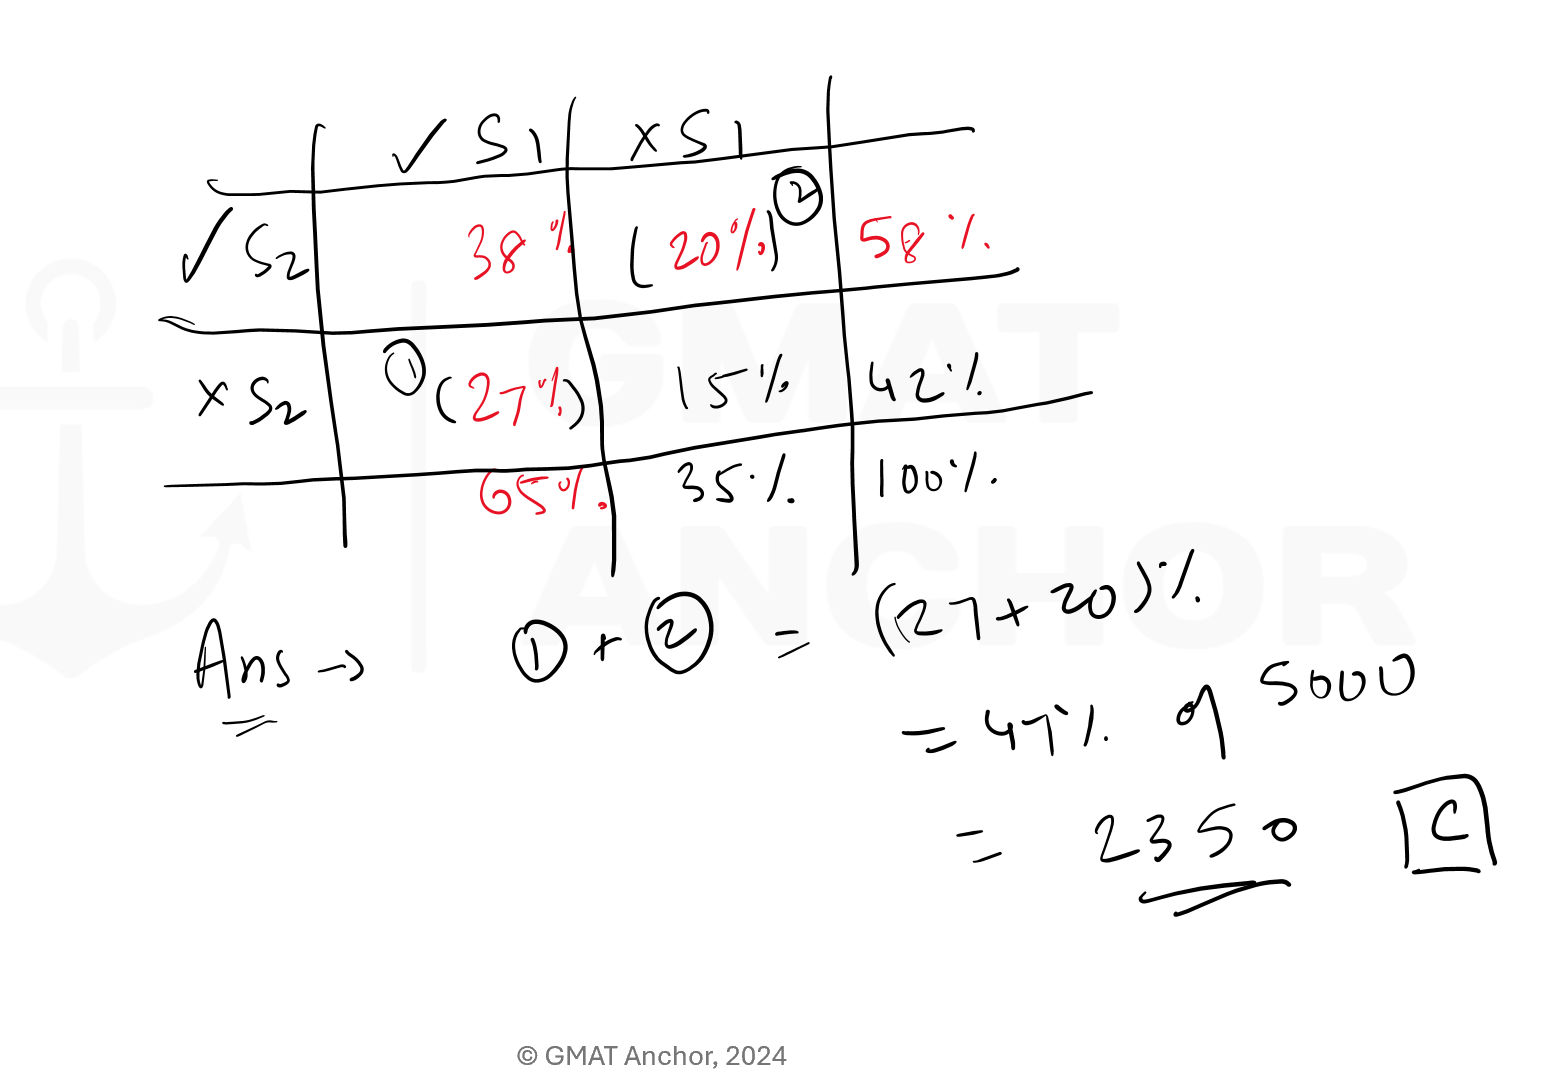 ✓ S1 × S1
✓ S2 38% (20%) ② 58%
× S2 ① (27%) 15% 42%
65% 35% 100%
Ans → ① + ② = (27 + 20)%
= 47% of 5000
= 2350 C
GMAT
ANCHOR
© GMAT Anchor, 2024